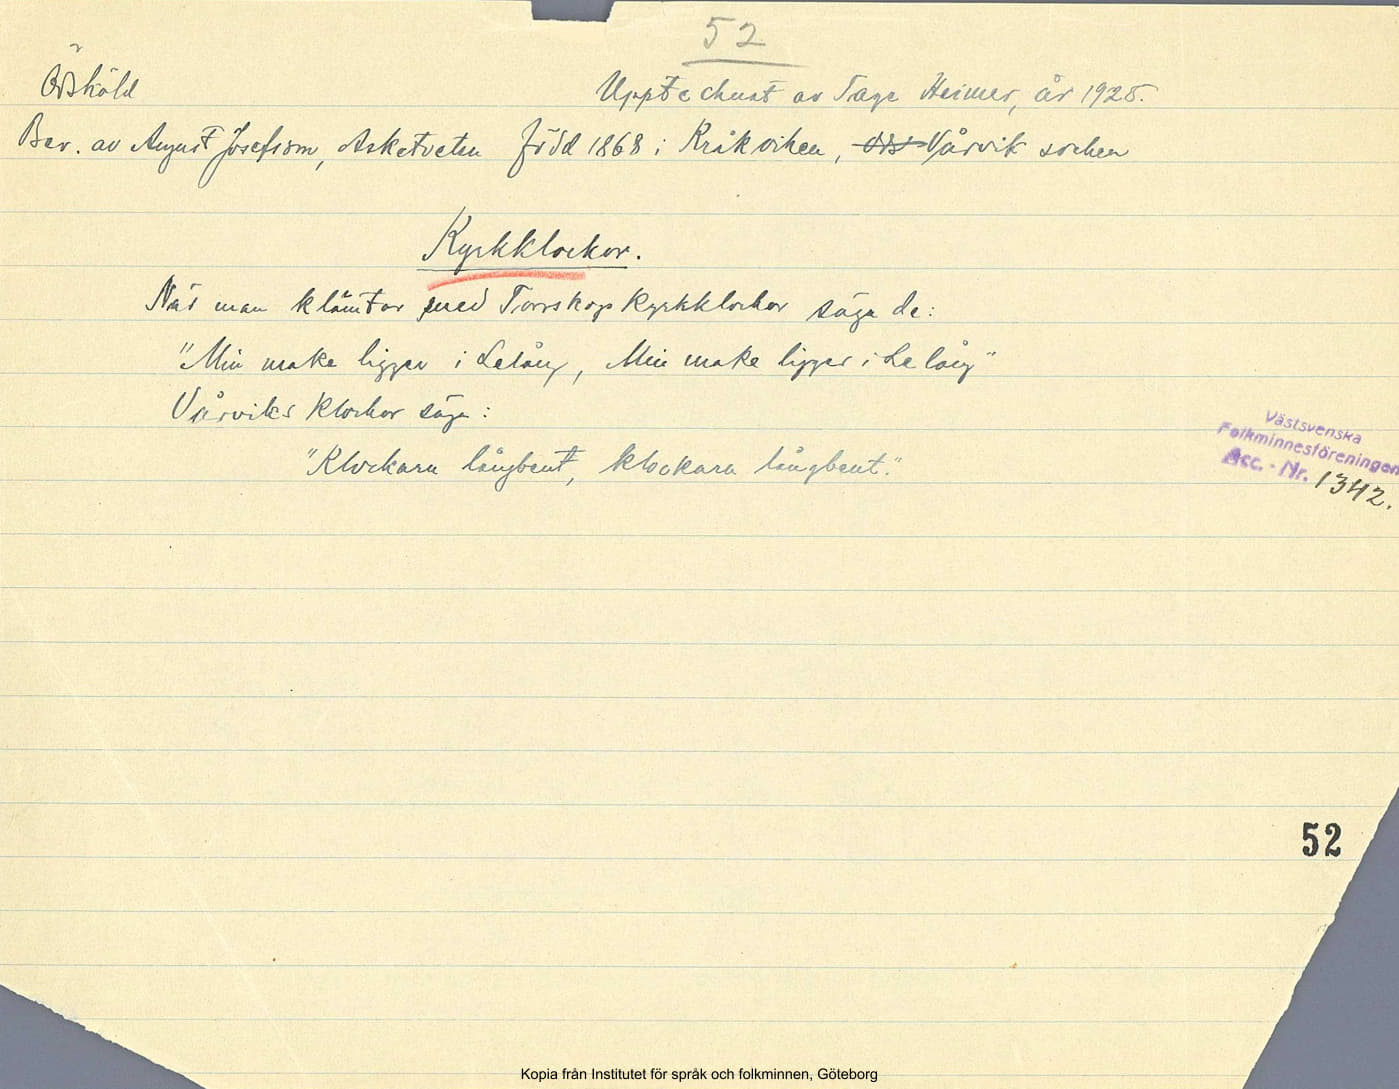 52
Ödsköld
Upptecknat av Tage Heimer, år 1925.
Ber. av August Josefsson, Asketveten född 1868 i Kråkviken, Vårvik socken
Kyrkklockor.
När man klämtar med Torrskogs kyrkklockor säga de:
"Min make ligger i Lelång, Min make ligger i Lelång"
Vårviks klockor säga:
"Klockarn långbent, klockarn långbent."
Västsvenska
Folkminnesföreningen
Acc. - Nr. 1342.
52
Kopia från Institutet för språk och folkminnen, Göteborg